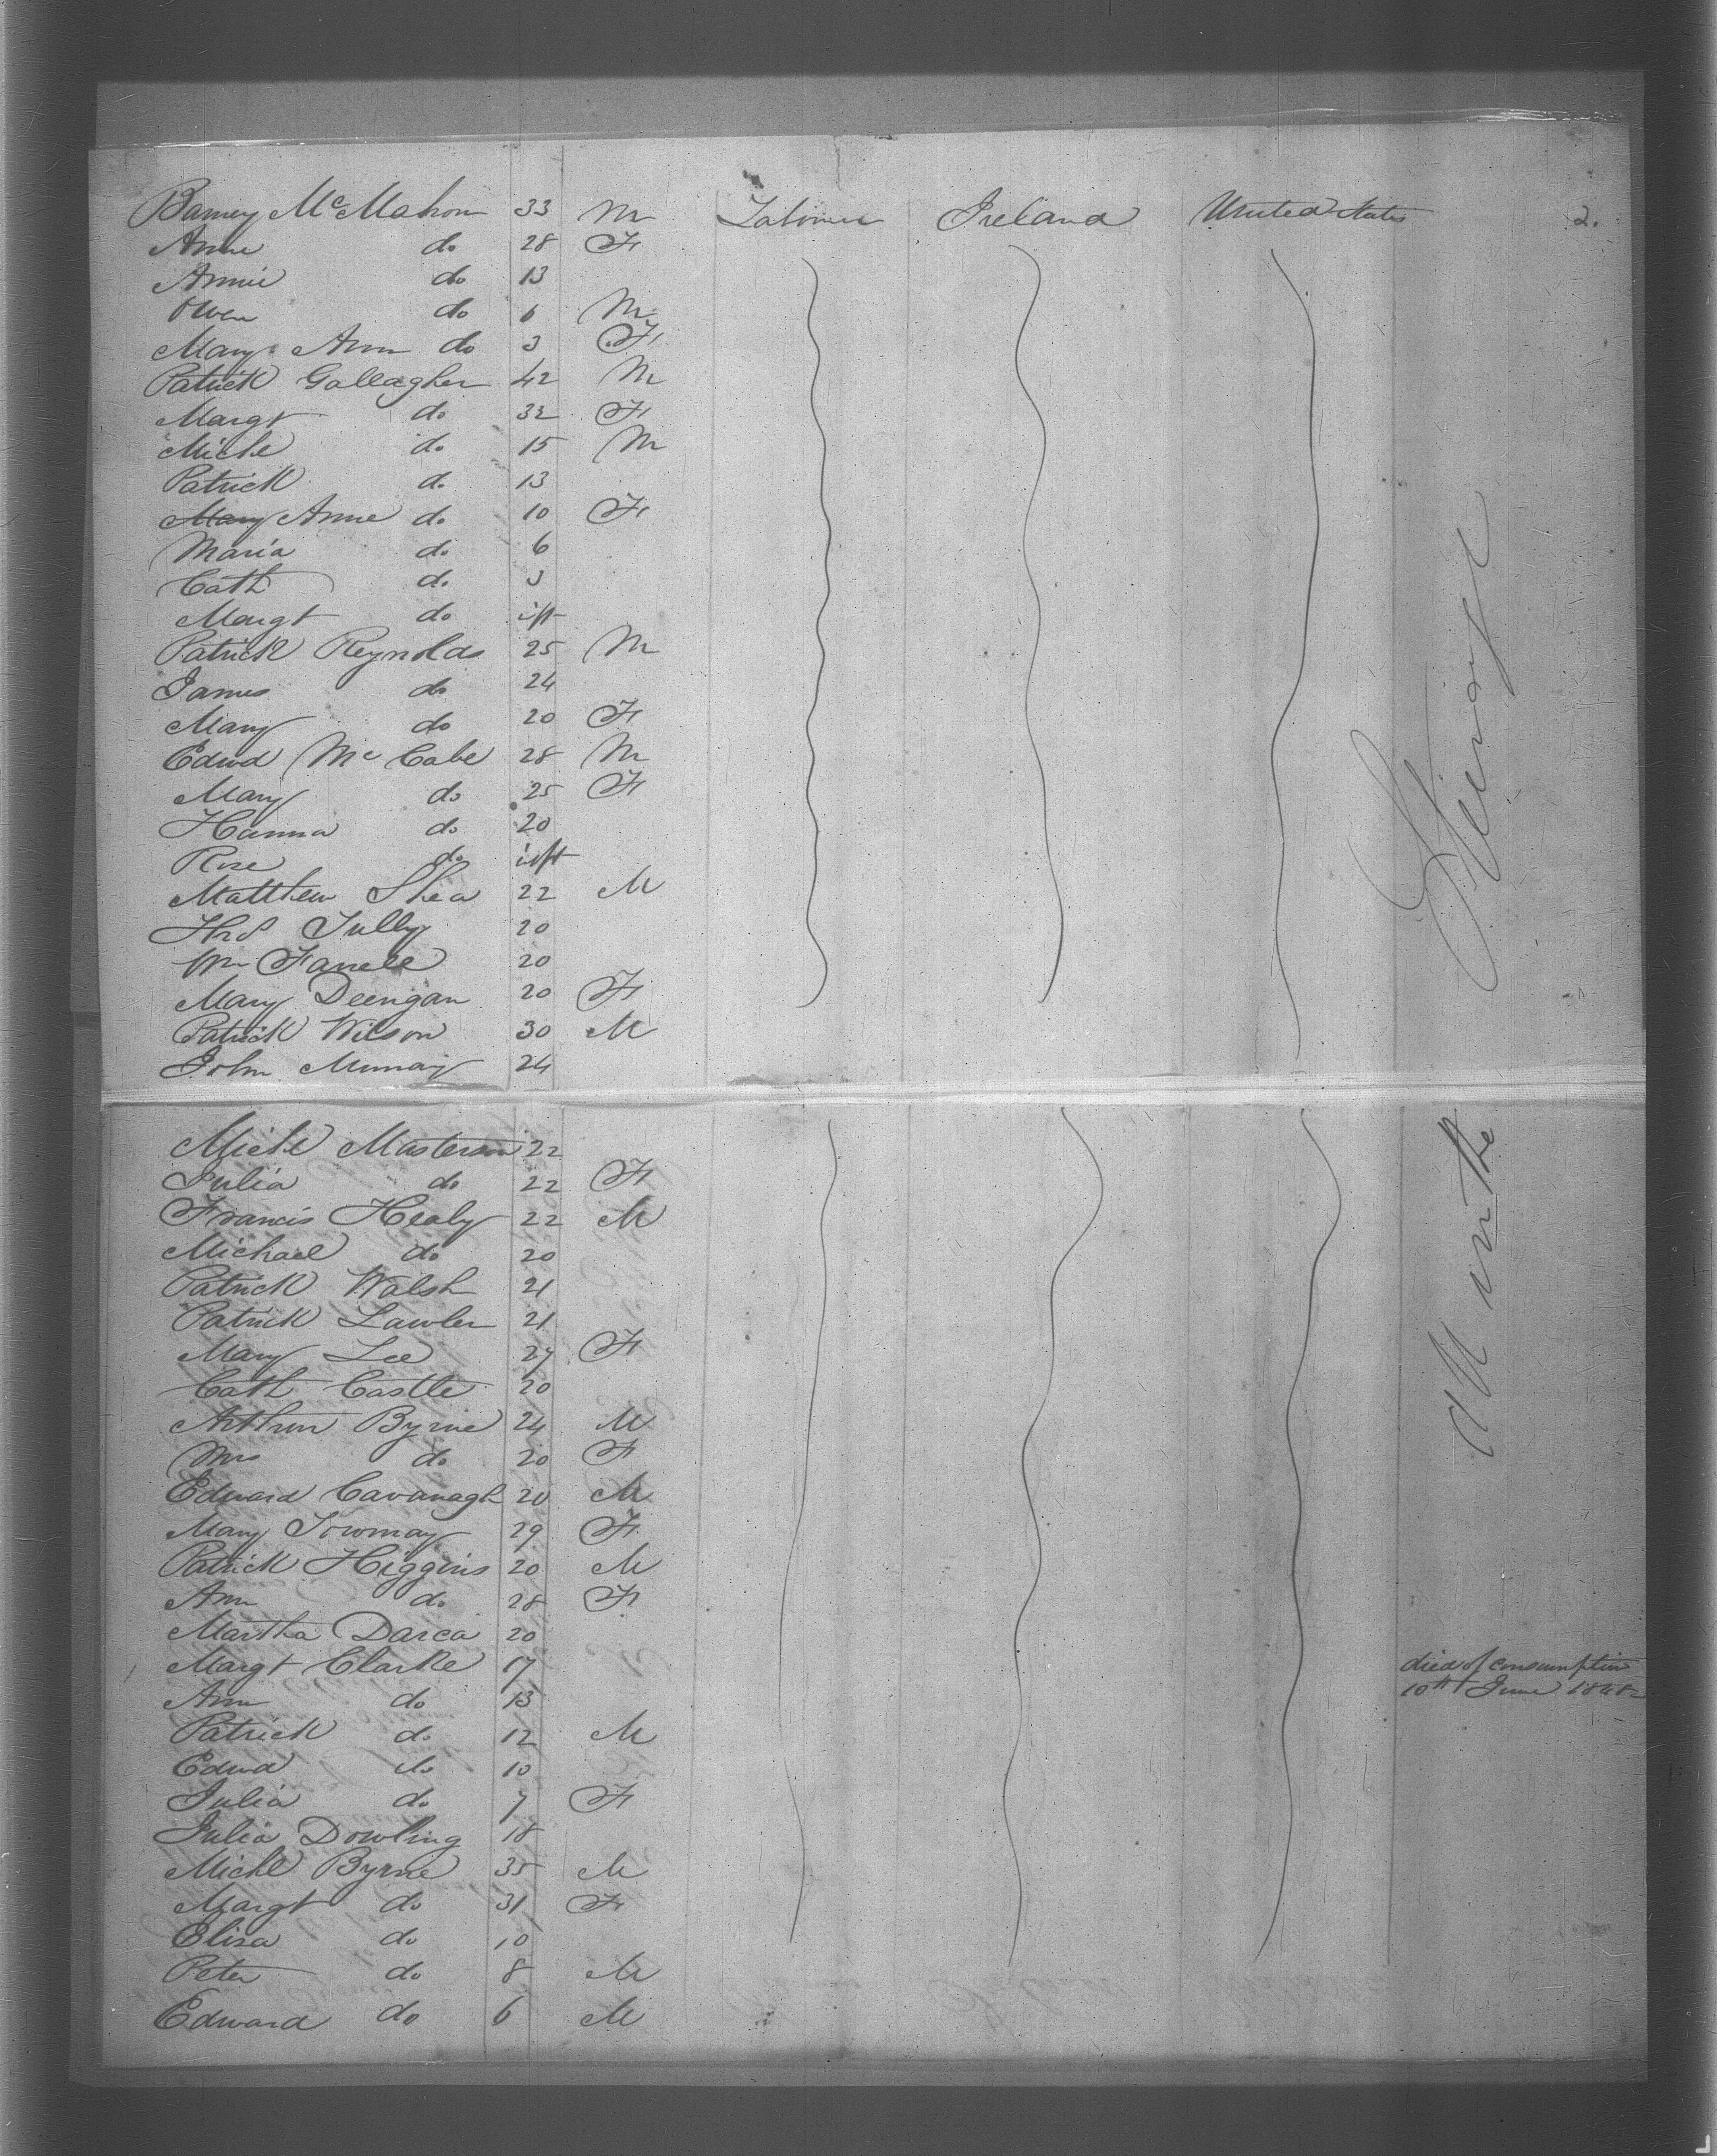 Barney McMahon 33 M Labourer Ireland United States 2.
Anne do 28 F
Annie do 13
Owen do 6 M
Mary Ann do 3 F
Patrick Gallagher 42 M
Margt do 32 F
Michl do 15 M
Patrick do 13
Mary Anne do 10 F
Maria do 6
Cath do 3
Margt do inft
Patrick Reynolds 25 M
James do 24
Mary do 20 F
Edwd McCabe 28 M
Mary do 25 F
Hanna do 20
Rose do inft
Matthew Shea 22 M
Thos Tully 20
Wm Farrell 20
Mary Deengan 20 F
Patrick Wilson 30 M
John Murray 24
Michl Masterson 22
Julia do 22 F
Francis Healy 22 M
Michael do 20
Patrick Walsh 21
Patrick Lawler 21
Mary Lee 27 F
Cath Castle 20
Arthur Byrne 24 M
Mrs do 20 F
Edward Cavanagh 20 M
Mary 29 F
Patrick Higgins 20 M
Ann do 28 F
Martha Darca 20
Margt Clarke 17 died of consumption
Ann do 13 10th June 1848
Patrick do 12 M
Edwd do 10
Julia do 7 F
Julia Dowling 18
Michl Byrne 35 M
Margt do 31 F
Eliza do 10
Peter do 8 M
Edward do 6 M
All in the Steerage